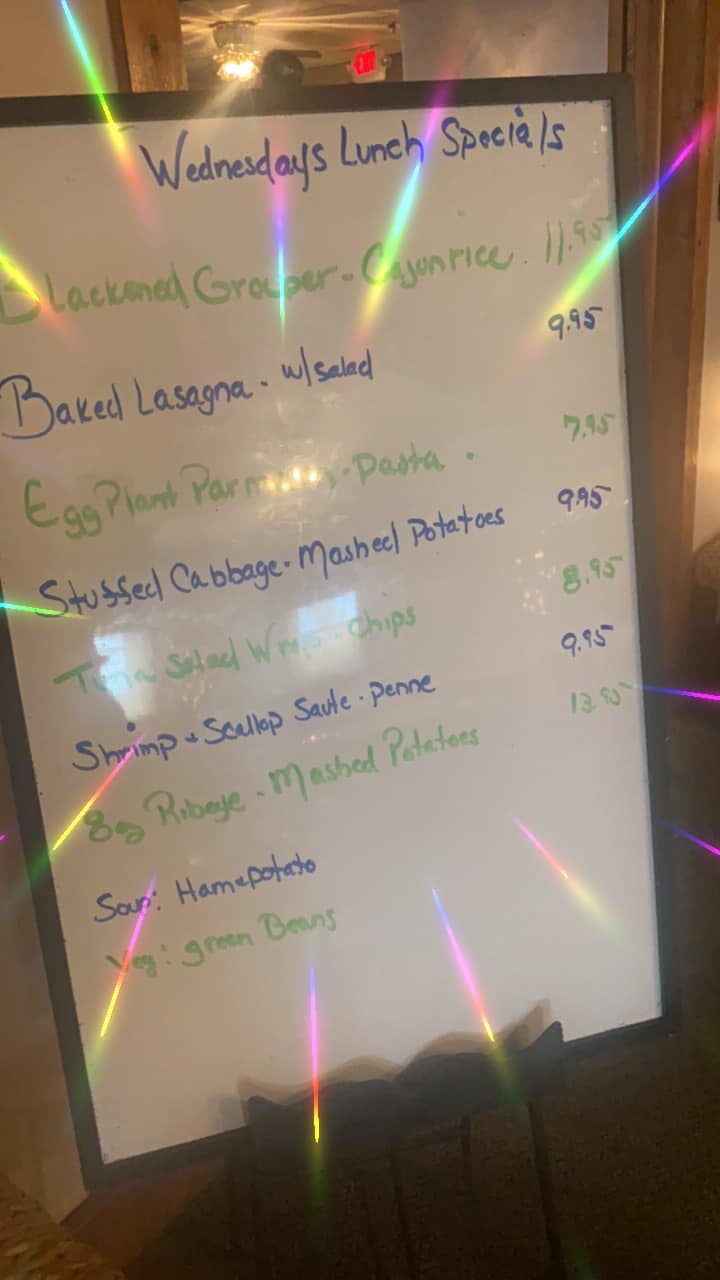 EXIT
Wednesdays Lunch Specials
Blackened Grouper - Cajun rice. 11.95
Baked Lasagna - w/salad 9.95
EggPlant Parm - Pasta . 7.95
Stuffed Cabbage - Mashed Potatoes 9.95
Tuna Salad Wrap - Chips 8.95
Shrimp + Scallop Saute - penne 9.95
8oz Ribeye - Mashed Potatoes 13.95
Soup: Ham & potato
Veg: green Beans